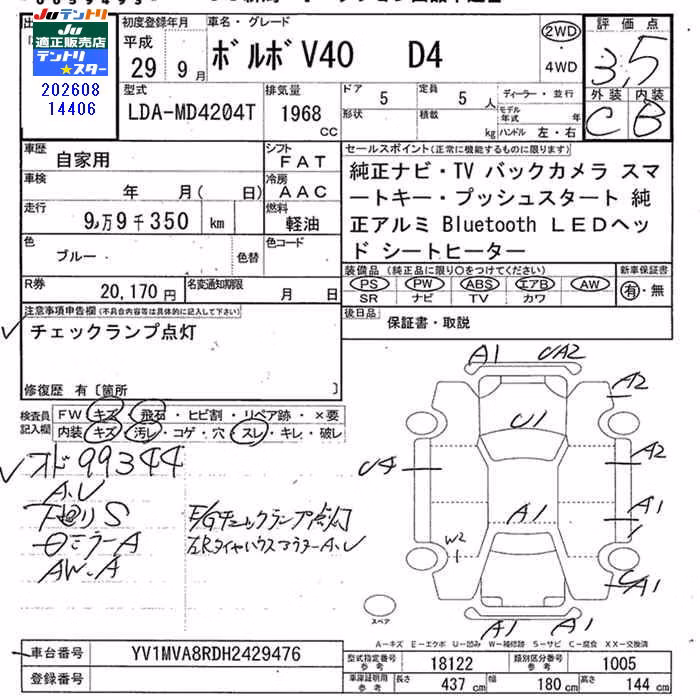 JU テントリ
JU適正販売店
テントリ
★スター
202608
14406
初度登録年月
平成
29 9月
車名・グレード
ボルボV40 D4
2WD
4WD
評価点
3,5
外装 内装
C B
型式
LDA-MD4204T
排気量
1968
CC
ドア 5
定員 5 人
形状
積載 kg
ディーラー・並行
モデル年式 年
ハンドル 左・右
車歴
自家用
シフト
FAT
車検
年 月( 日)
冷房
AAC
走行
9万9千350 km
燃料
軽油
色
ブルー
色替
色コード
R券
20,170円
名変通知期限
月 日
セールスポイント(正常に機能するものに限ります)
純正ナビ・TV バックカメラ スマ
ートキー・プッシュスタート 純
正アルミ Bluetooth LEDヘッ
ド シートヒーター
装備品(純正品に限り○をつけてください)
PS PW ABS エアB AW
SR ナビ TV カワ
新車保証書
有・無
後日品
保証書・取説
注意事項申告欄(不具合内容等は具体的に記入して下さい)
チェックランプ点灯
修復歴 有[箇所 ]
検査員
記入欄
FW キズ・飛石・ヒビ割・リペア跡・×要
内装・キズ・汚レ・コゲ・穴・スレ・キレ・破レ
オド99344
A、U
下廻りS
AW、A
E/Gチェックランプ点灯
A1 UA2
A2
U1
U4
A2
A1
A1
W2
A1
A1 A1
スペア
A-キズ E-エクボ U-凹み W-補修跡 S-サビ C-腐食 XX-交換済
車台番号
YV1MVA8RDH2429476
登録番号
型式指定番号
参考
18122
類別区分番号
参考
1005
車庫証明用
参考
長さ 437 cm
幅 180 cm
高さ 144 cm